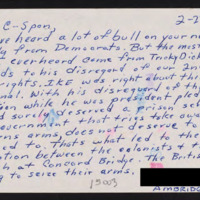 C-Span, 2-2
ve heard a lot of bull on your ne
ly from Democrats. But the most
ever heard came from Tricky Dick
ds to his disregard of our 2n
rights. IKE was right about th
nal. With his disregard of th
ion while he was president ple
d surely deserved a prison se
overnment that tries take away
s arms, does not deserve to
ed to. Thats what led to the
tation between the colonists & t
h at Concord Bridge. The Britis
g to seize their arms.
1993
AMBRIDG